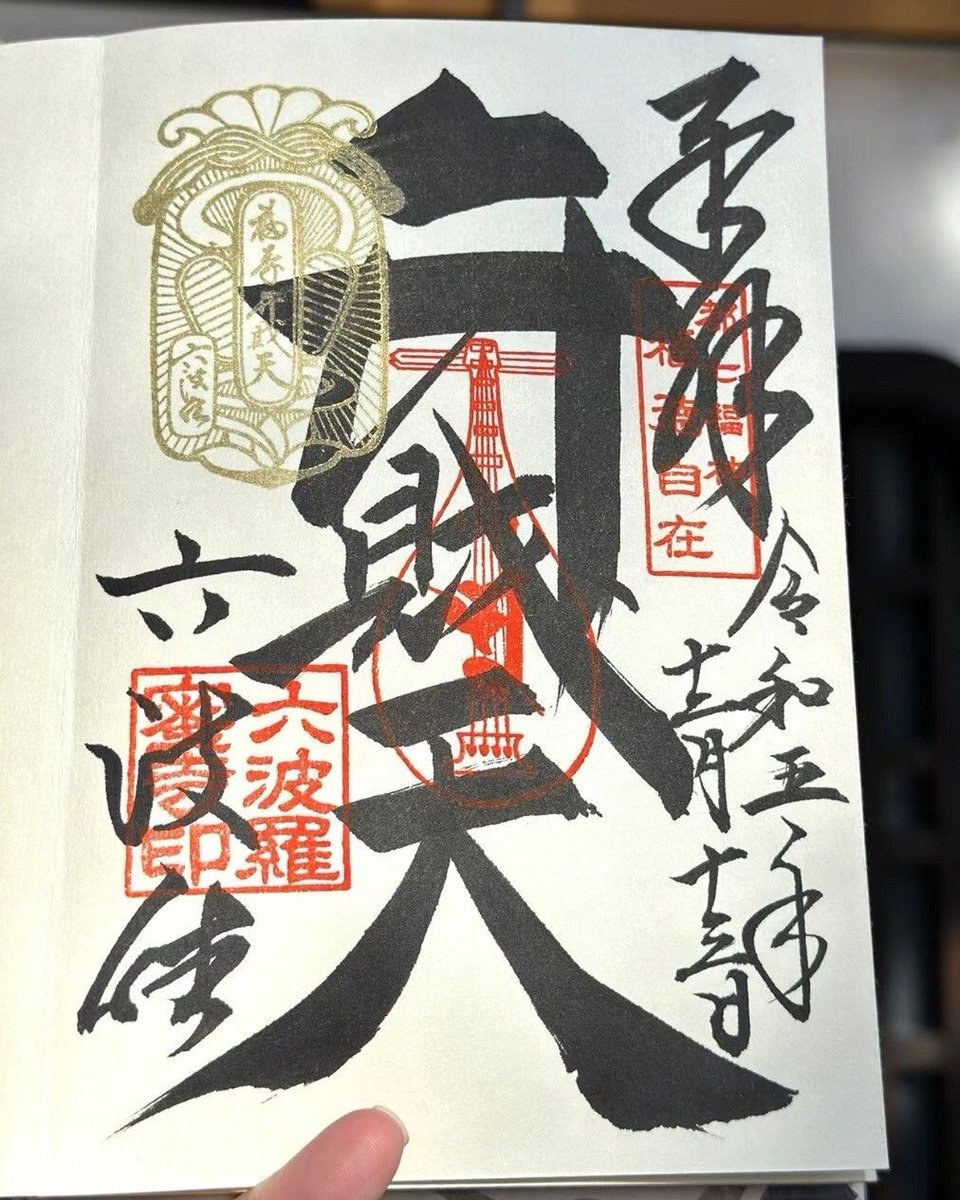 奉拝
都七福神
自在
令和五年
十二月十三日
弁財天
福寿弁財天
六波羅
六波羅
六波羅
蜜寺印